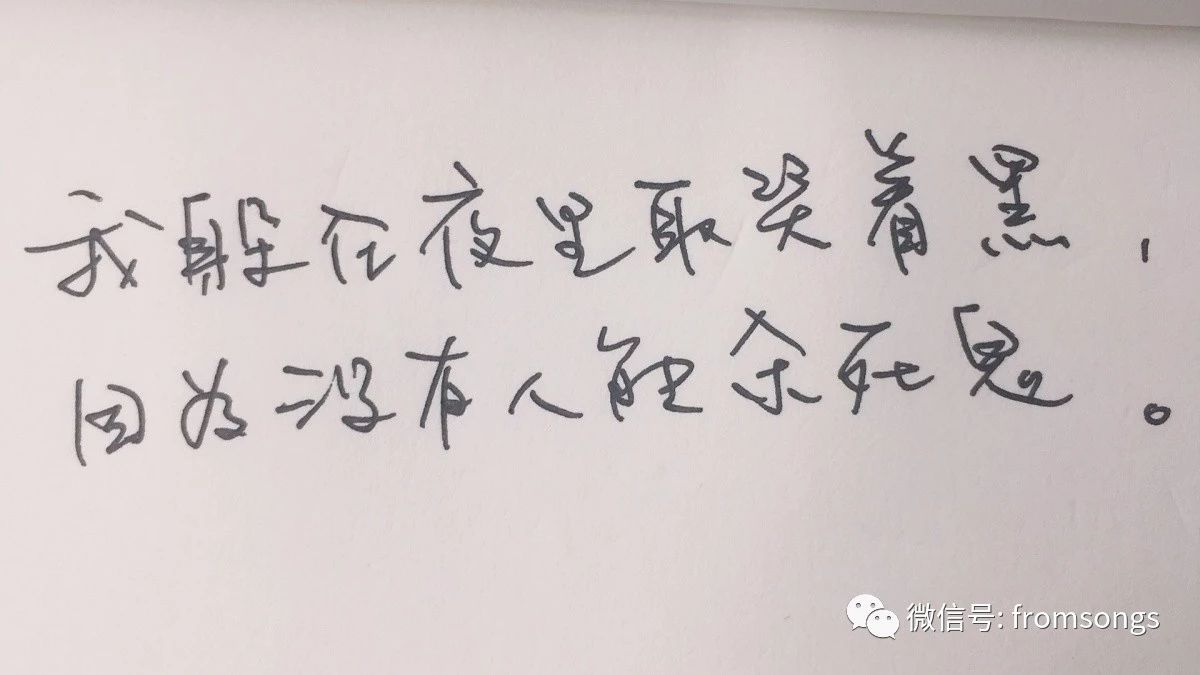 我躲在夜里取笑着黑，
因为没有人能杀死鬼。
微信号: fromsongs